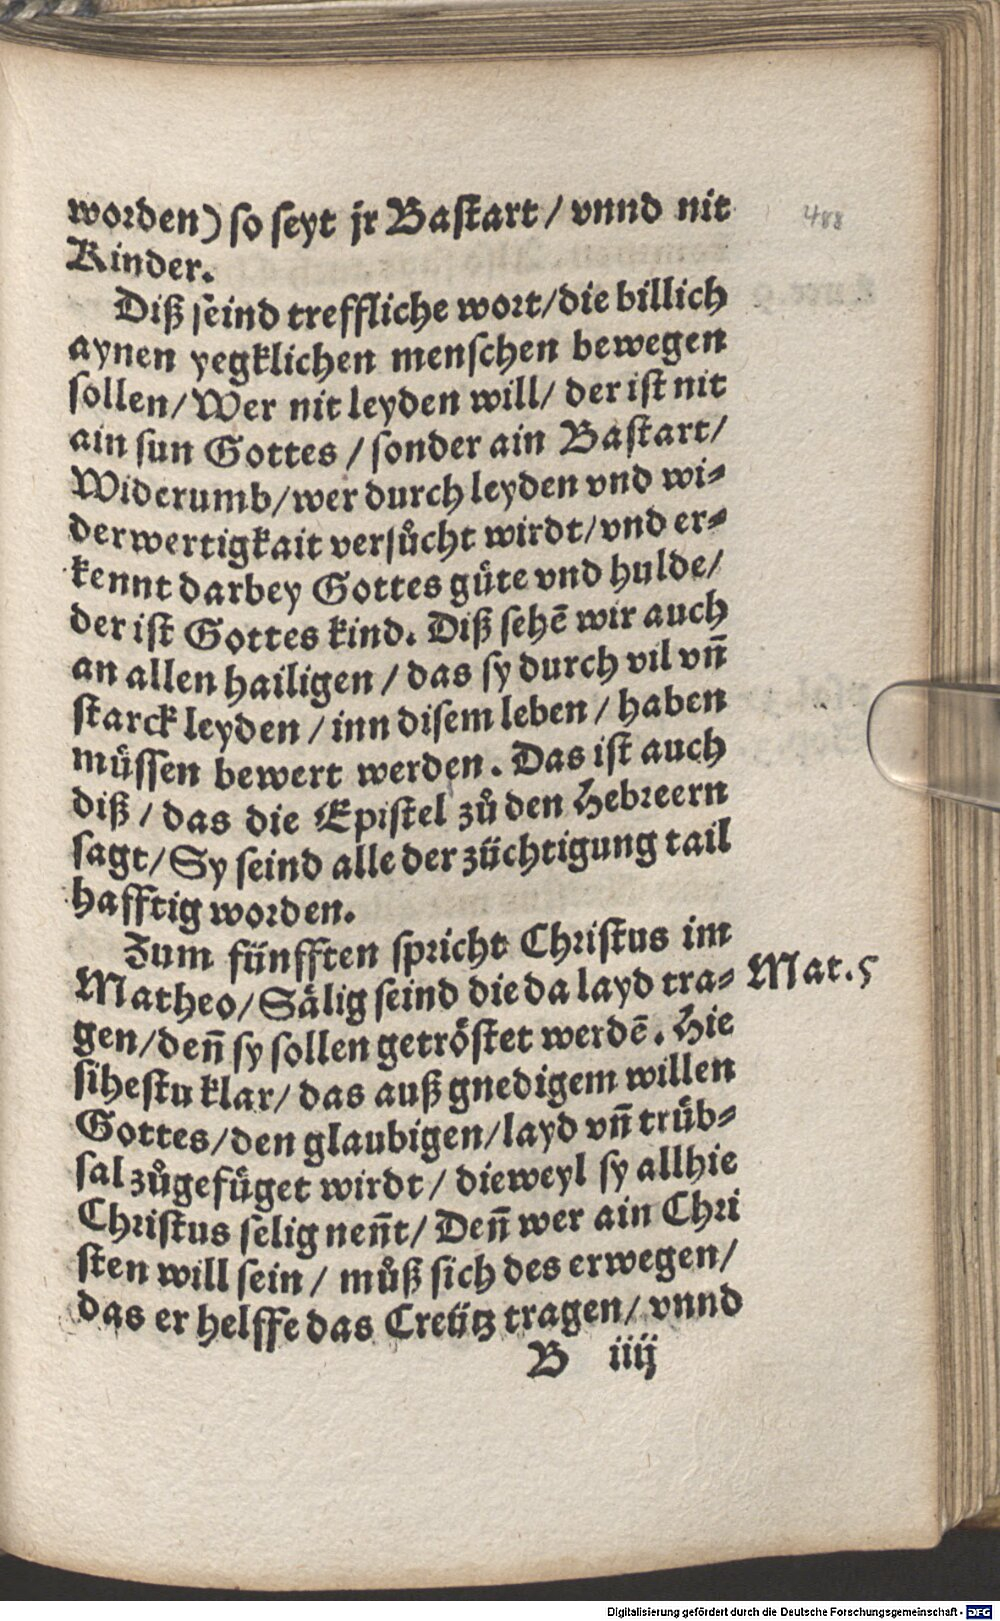 worden) so seyt jr Bastart / vnnd nit
488
Kinder.
Diß seind treffliche wort/die billich
aynen yegklichen menschen bewegen
sollen/Wer nit leyden will/ der ist nit
ain sun Gottes / sonder ain Bastart/
Widerumb/wer durch leyden vnd wi⸗
derwertigkait versůcht wirdt/vnd er⸗
kennt darbey Gottes güte vnd hulde/
der ist Gottes kind. Diß sehē wir auch
an allen hailigen / das sy durch vil vn̄
starck leyden / inn disem leben / haben
müssen bewert werden. Das ist auch
diß / das die Epistel zů den Hebreern
sagt/Sy seind alle der züchtigung tail
hafftig worden.
Zum fünfften spricht Christus im
Matheo/Sälig seind die da layd tra⸗
Mat.5
gen/den̄ sy sollen getröstet werdē. Hie
sihestu klar/ das auß gnedigem willen
Gottes/den glaubigen/layd vn̄ trüb⸗
sal zůgefüget wirdt/ dieweyl sy allhie
Christus selig nen̄t/ Den̄ wer ain Chri
sten will sein / můß sich des erwegen/
das er helffe das Creütz tragen/ vnnd
B iiij
Digitalisierung gefördert durch die Deutsche Forschungsgemeinschaft - DFG